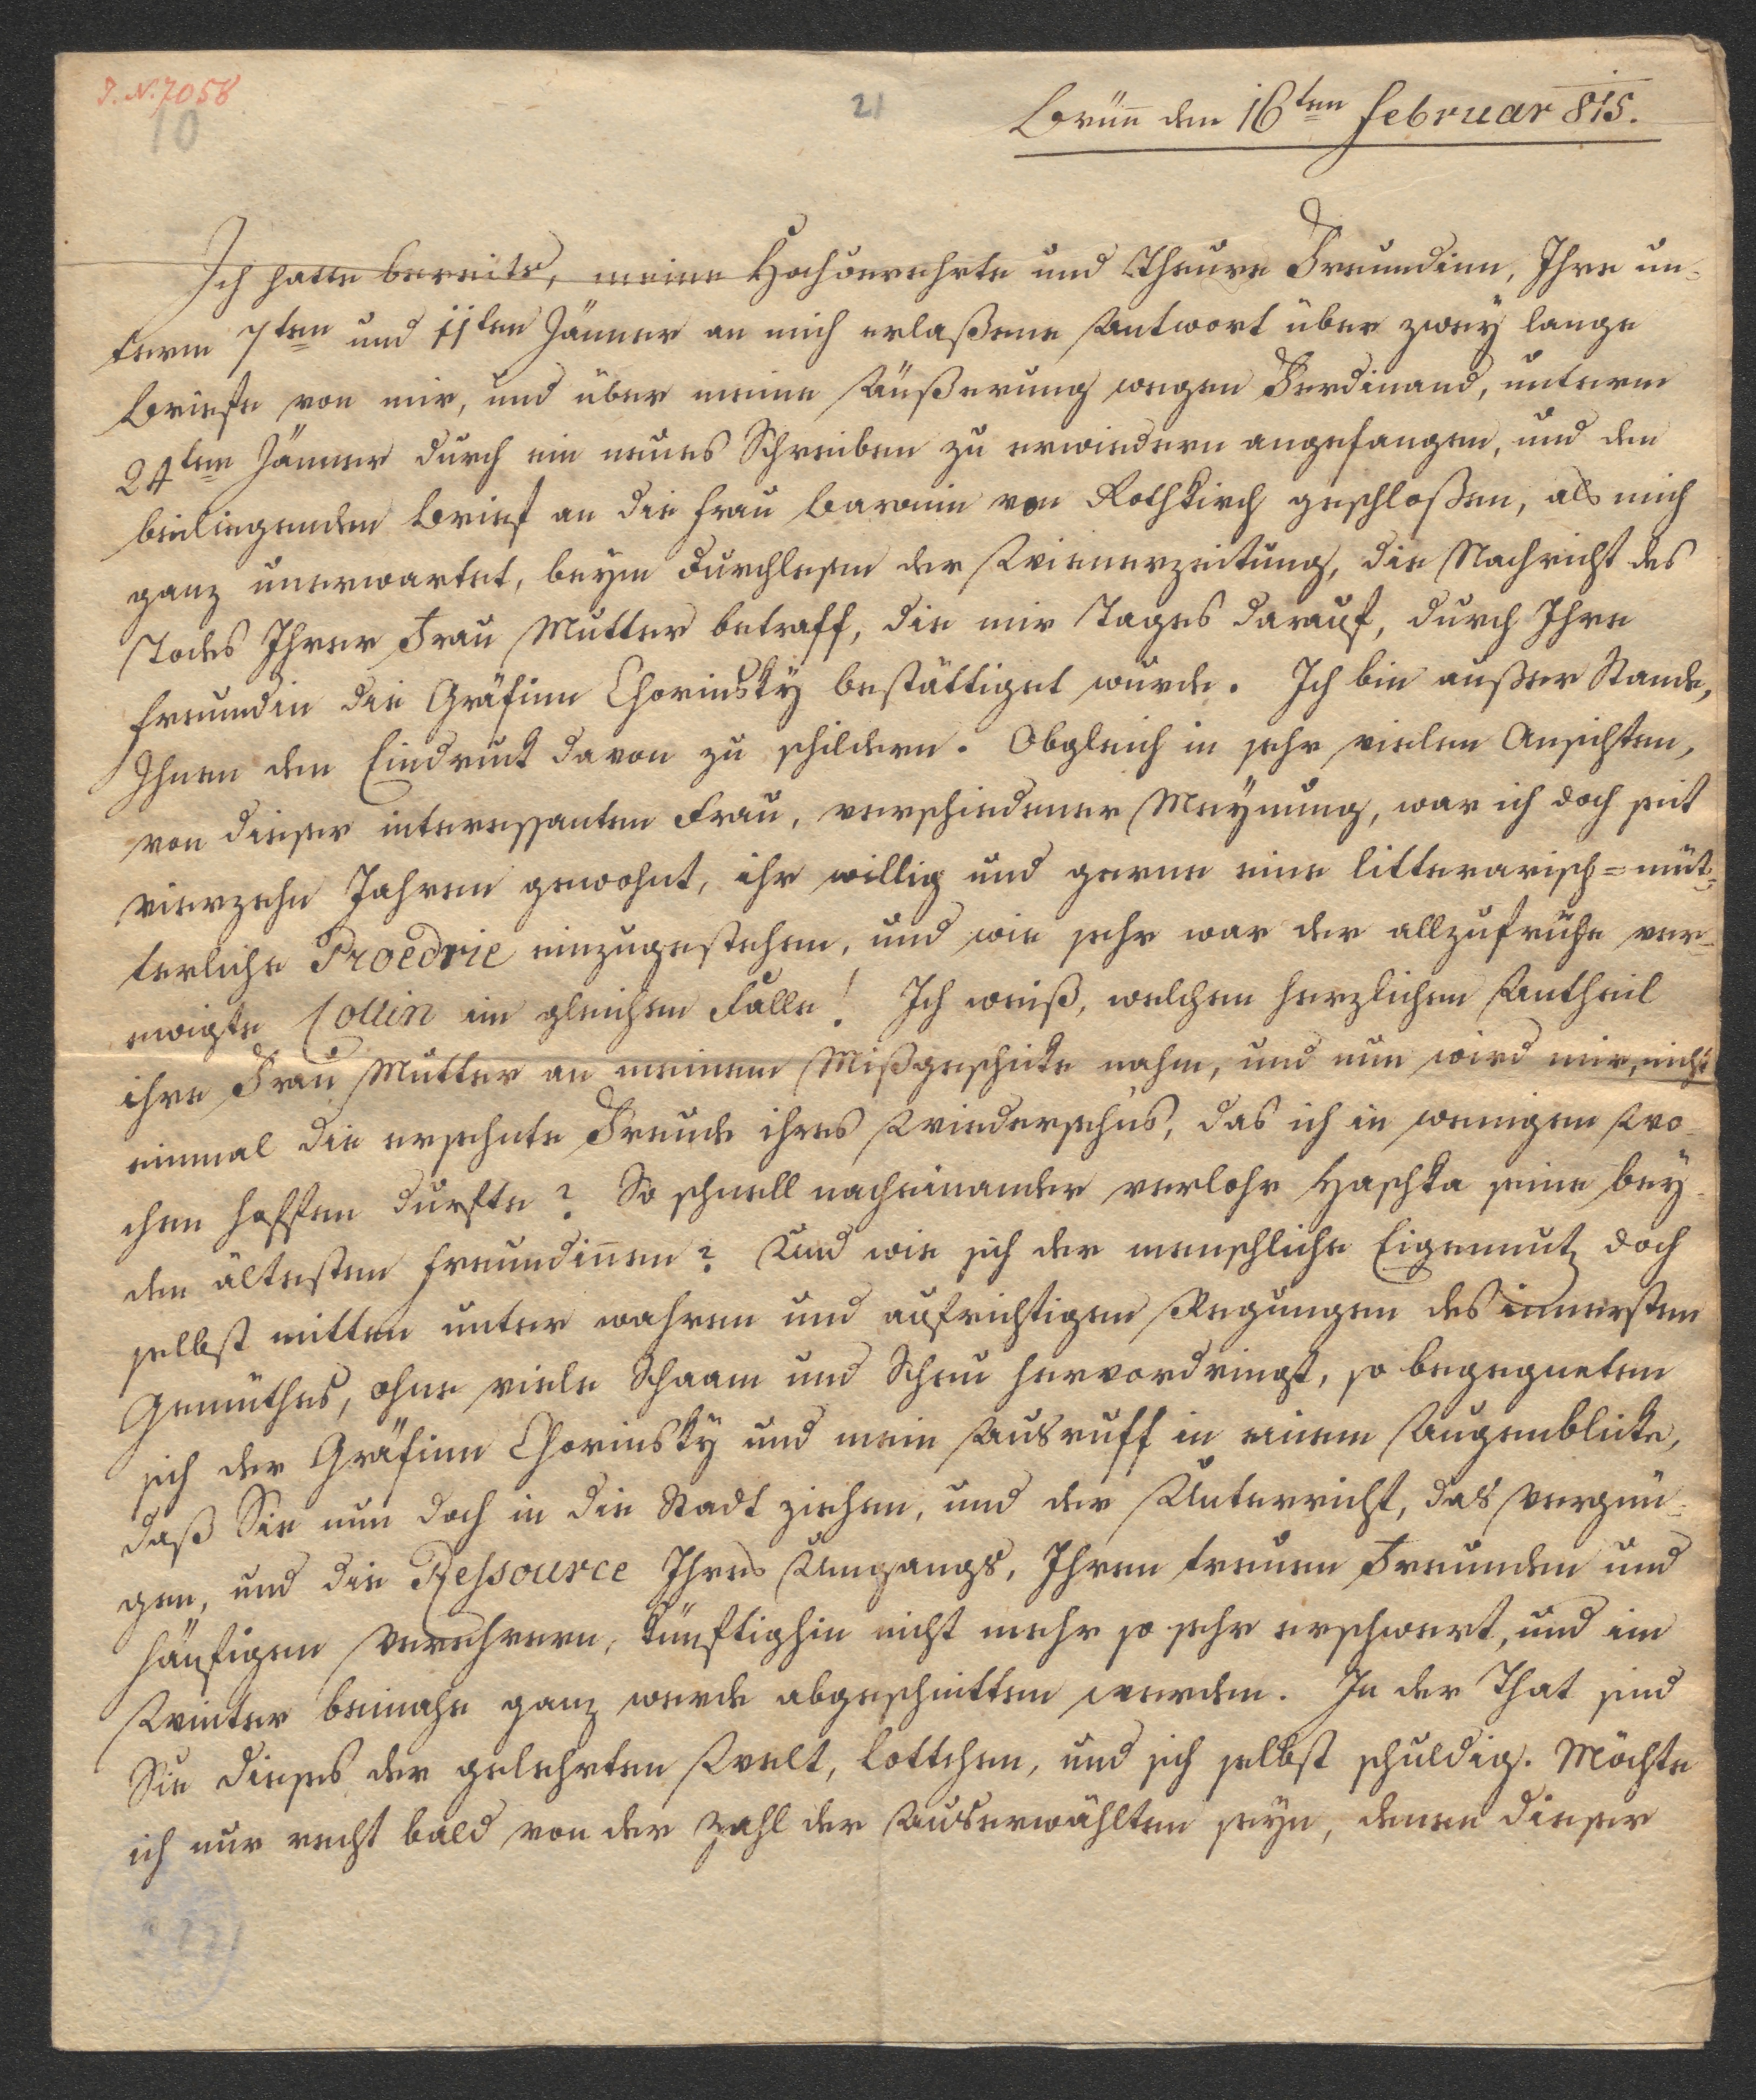 I. N. 7058
10
21
Brün̄ den 16ten februar 815.
Ich hatte bereits, meine Hochverehrte und Theure Freundinn, Ihre un-
term 7ten und 11ten Jänner an mich erlaßene Antwort über zwey lange
Briefe von mir, und über meine Äußerung wegen Ferdinand, unterm
24ten Jänner durch ein neues Schreiben zu erwiedern angefangen, und den
beiliegenden Brief an die Frau Baronin von Rothkirch geschloßen, als mich
ganz unerwartet, beym Durchlesen der Wienerzeitung, die Nachricht des
Todes Ihrer Frau Mutter betraff, die mir Tages darauf, durch Ihre
Freundin die Gräfinn Chorinsky bestättiget wurde. Ich bin außer Stande,
Ihnen den Eindruck davon zu schildern. Obgleich in sehr vielen Ansichten,
von dieser interessanten Frau, verschiedener Meynung, war ich doch seit
vierzehn Jahren gewohnt, ihr willig und gerne eine litterarisch=müt-
terliche Proedrie einzugestehen, und wie sehr war der allzufrühe ver-
ewigte Collin im gleichen Falle! Ich weiß, welchen herzlichen Antheil
ihre Frau Mutter an meinem Mißgeschicke nahm, und nun wird mir, nicht
einmal die ersehnte Freude ihres Wiedersehns, das ich in wenigen Wo-
chen hoffen durfte? So schnell nacheinander verlohr Haschka seine bey-
den ältesten Freundin̄en? Und wie sich der menschliche Eigennutz doch
selbst mitten unter wahren und aufrichtigen Regungen des innersten
Gemüthes, ohne viele Schaam und Scheu hervordringt, so begegneten
sich der Gräfinn Chorinsky und mein Ausruff in einem Augenblicke,
daß Sie nun doch in die Stadt ziehen, und der Unterricht, das Vergnü-
gen, und die Ressource Ihres Umgangs, Ihren treuen Freunden und
häufigen Verehrern, künftighin nicht mehr so sehr erschwert, und im
Winter beinahe ganz werde abgeschnitten werden. In der That sind
Sie dieses der gelehrten Welt, Lottchen, und sich selbst schuldig. Möchte
ich nur recht bald von der Zahl der Auserwählten seyn, denen dieser